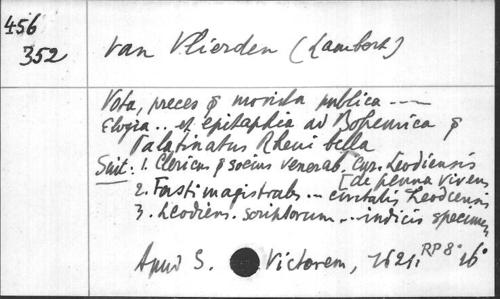 456
352
Van Vlierden (Lambert)
Vota, preces & monita publica ---
Elogia .. et epitaphia ad Bohemica &
Palatinatus Rheni bella
Suit: 1. Clericus & socius venerab. Cur. Leodiensis
[de penna vivens
2. Fasti magistrales ... civitatis Leodiensis
3. Leodiens. scriptorum ... indicis specimen
Apud S. Victorem, 1621. RP 8° 16°